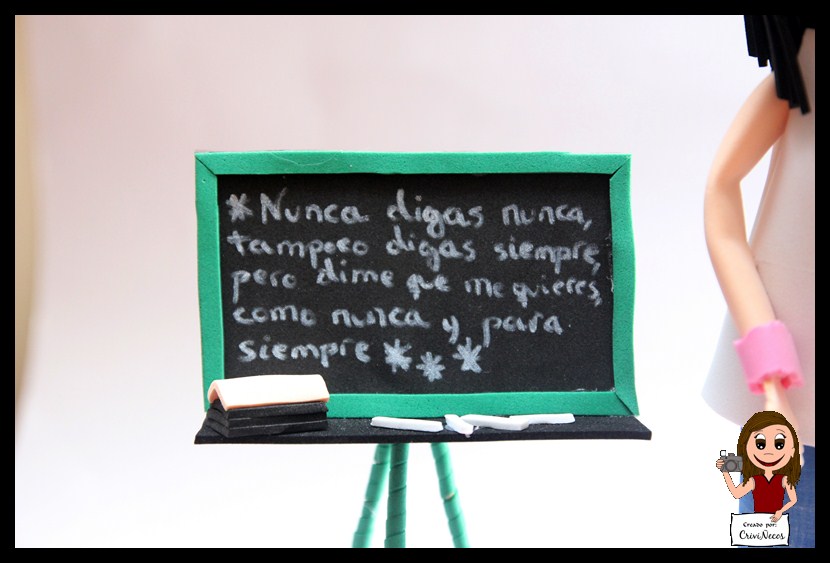 *Nunca digas nunca,
tampoco digas siempre,
pero dime que me quieres,
como nunca y para
siempre ***
Creado por:
CriviÑecos